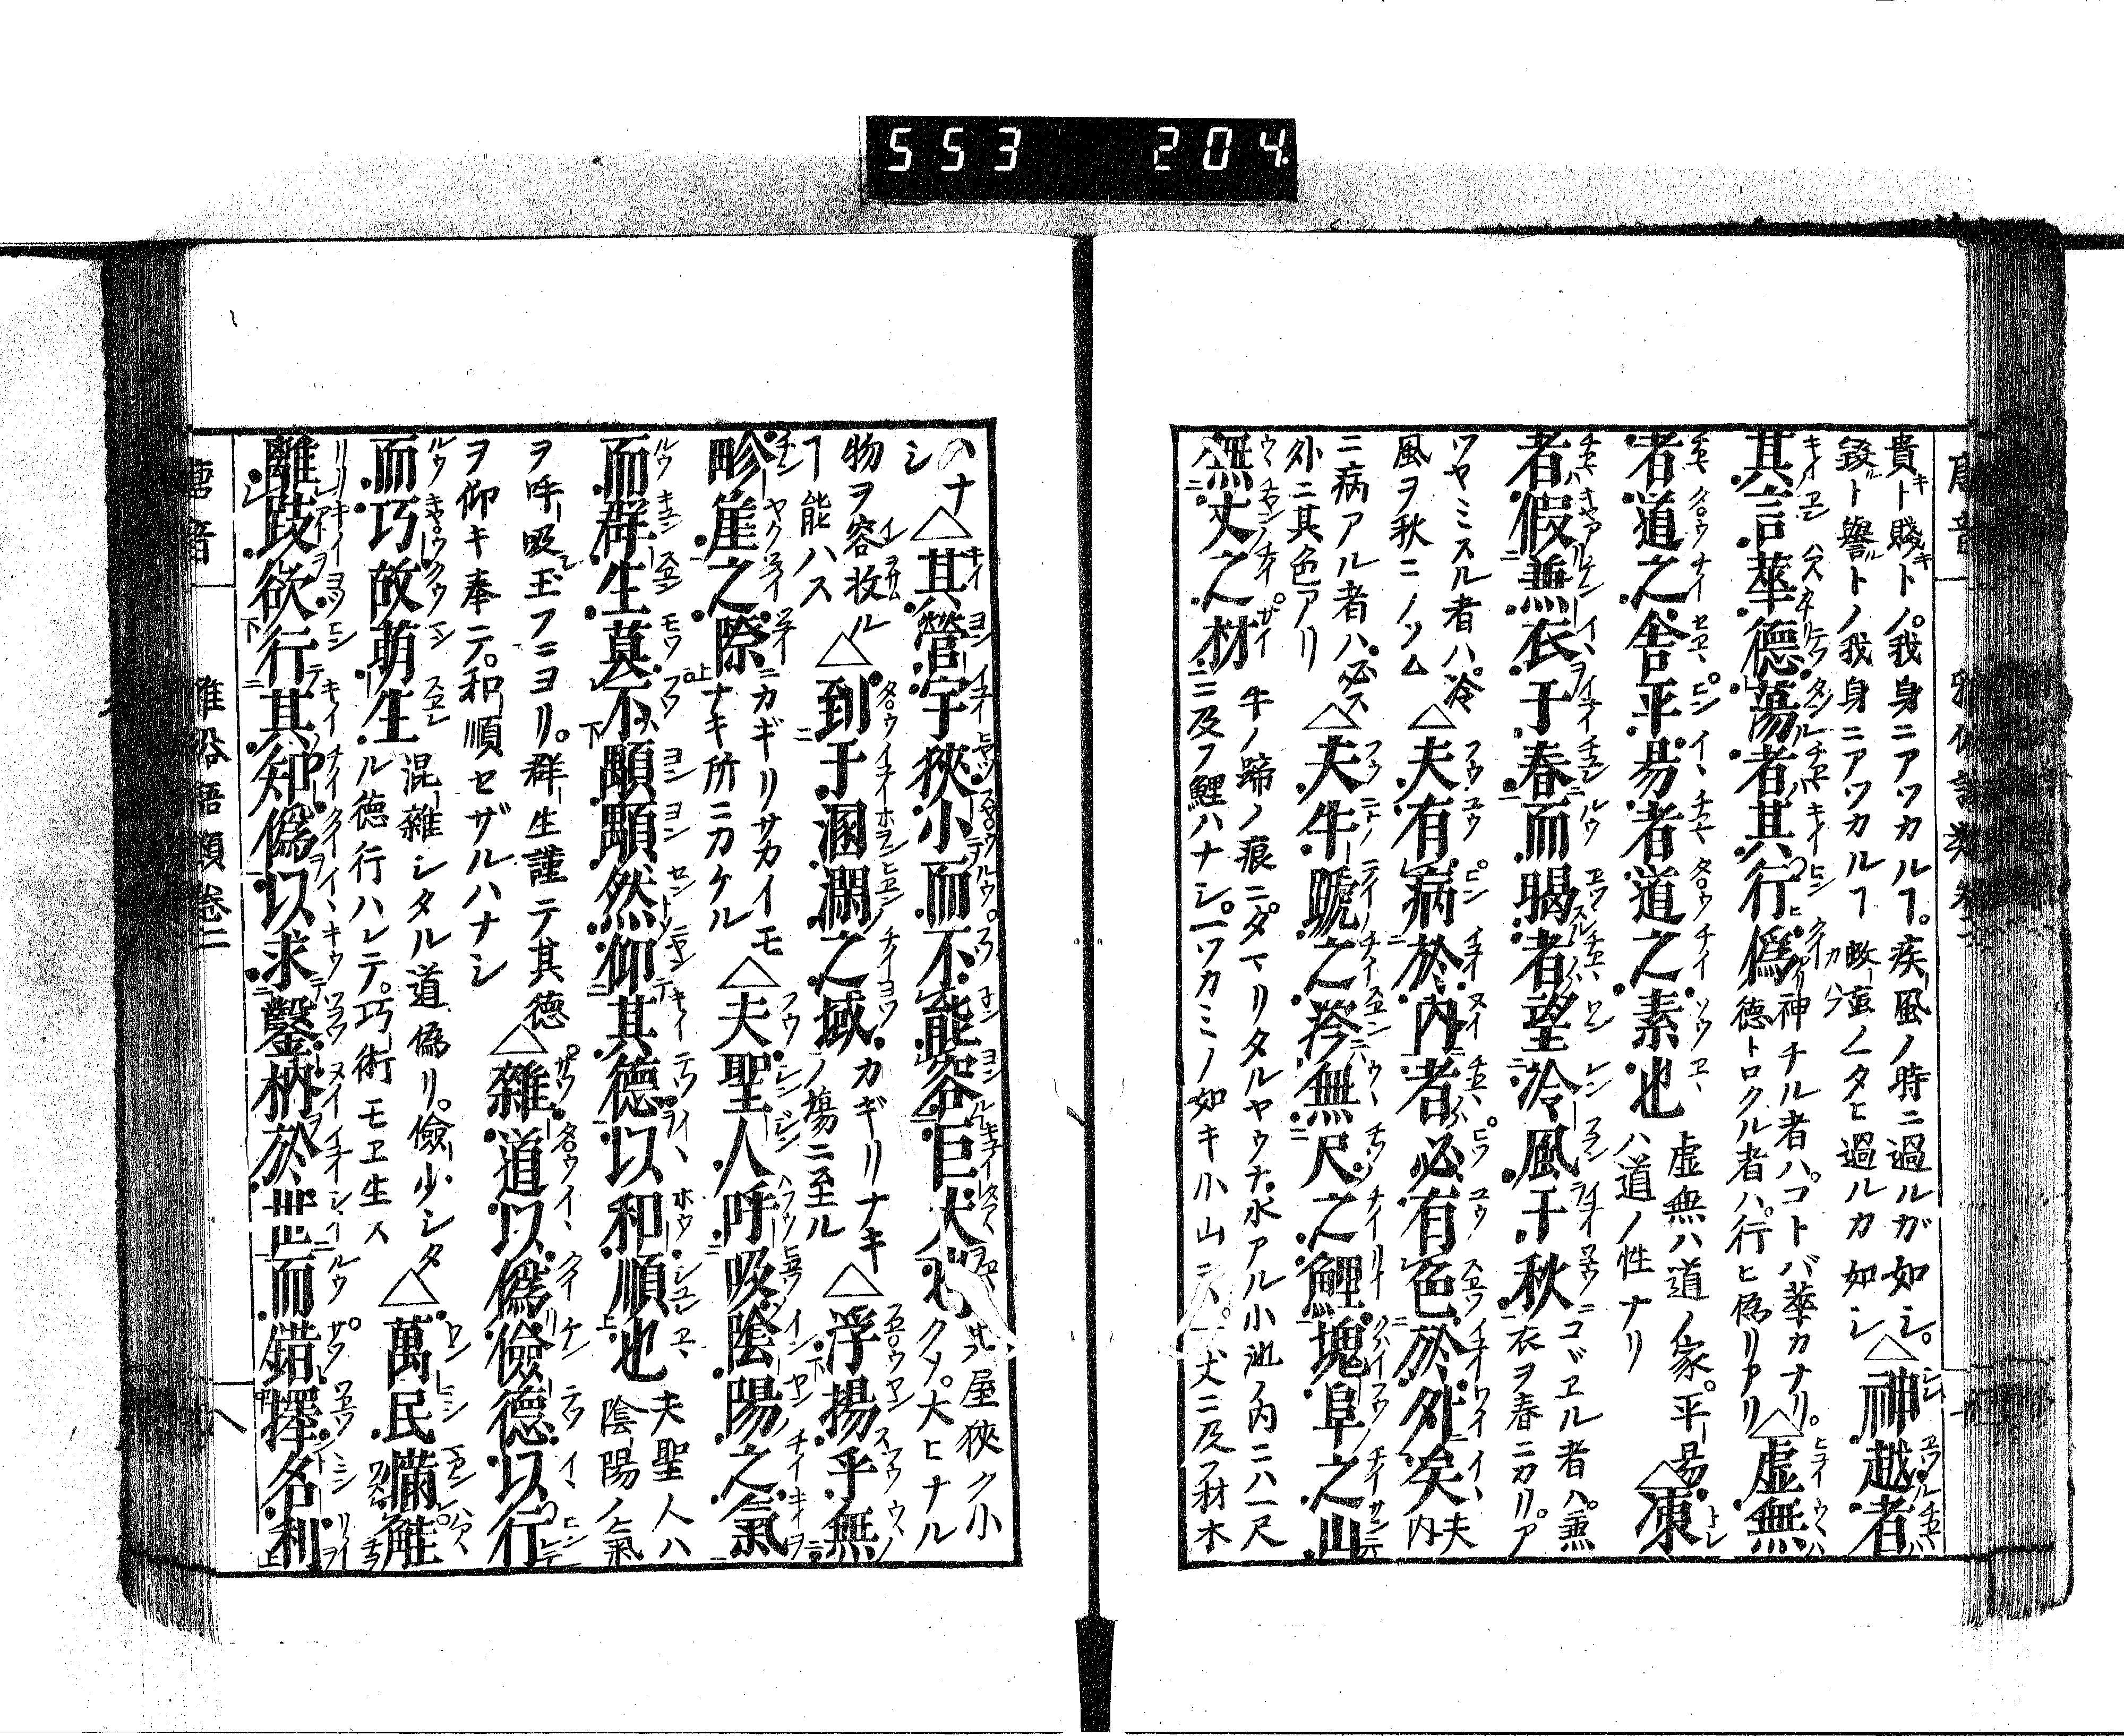 553 204.
貴ト賤トノ我身ニアツカルヿ。疾風ノ時ニ過ルガ如シ。△神越者
毀ト譽トノ我身ニアツカルヿ 蚊䖟ノ一タヒ過ルカ如シ
其言華。德蕩者。其行僞 神チル者ハ。コトバ華カナリ。△虚無
德トロクル者ハ。行ヒ偽リアリ
者。道之舍。平易者。道之素也 虚無ハ道ノ家。平易 △凍
ハ道ノ性ナリ
者。假無衣于春。而暍者。望冷風于秋 コヾヱル者ハ。兼
衣ヲ春ニカリ。ア
ツヤミスル者ハ。冷 △夫有病於内者。必有色於外矣 夫
風ヲ秋ニノゾム 内
ニ病アル者ハ。必ス △夫牛蹏之涔。無尺之鯉。塊阜之山
外ニ其色アリ
無丈之材 牛ノ蹄ノ痕ニ。タマリタルヤウナ。水アル小池ノ内ニハ一尺
ニ及フ鯉ハナシ。一ツカミノ如キ小山ニハ。一丈ニ及フ材木
ハナ △其營宇狹小。而不能容巨大也 其屋狹ク小
シ クソ。大ヒナル
物ヲ容收ル △到于溷瀾之域 カギリナキ △浮揚乎無
ヿ能ハス ノ塲ニ至ル
畛崖之際 カギリサカイモ △夫聖人呼吸陰陽之氣
ナキ所ニカケル
而群生莫不顒顒然。仰其德以和順也 夫聖人ハ
陰陽ノ氣
ヲ呼吸シ玉フニヨリ。群生謹テ其德 △雜道以僞。儉德以行
ヲ仰キ奉テ。和順セザルハナシ
而巧故萌生 混雜シタル道偽リ。儉少シタ △萬民滿觟
ル德行ハレテ。巧術モヱ生ス
離跂。欲行其知僞。以求鑿枘於世。而錯擇名利
唐音 雅俗語類卷二